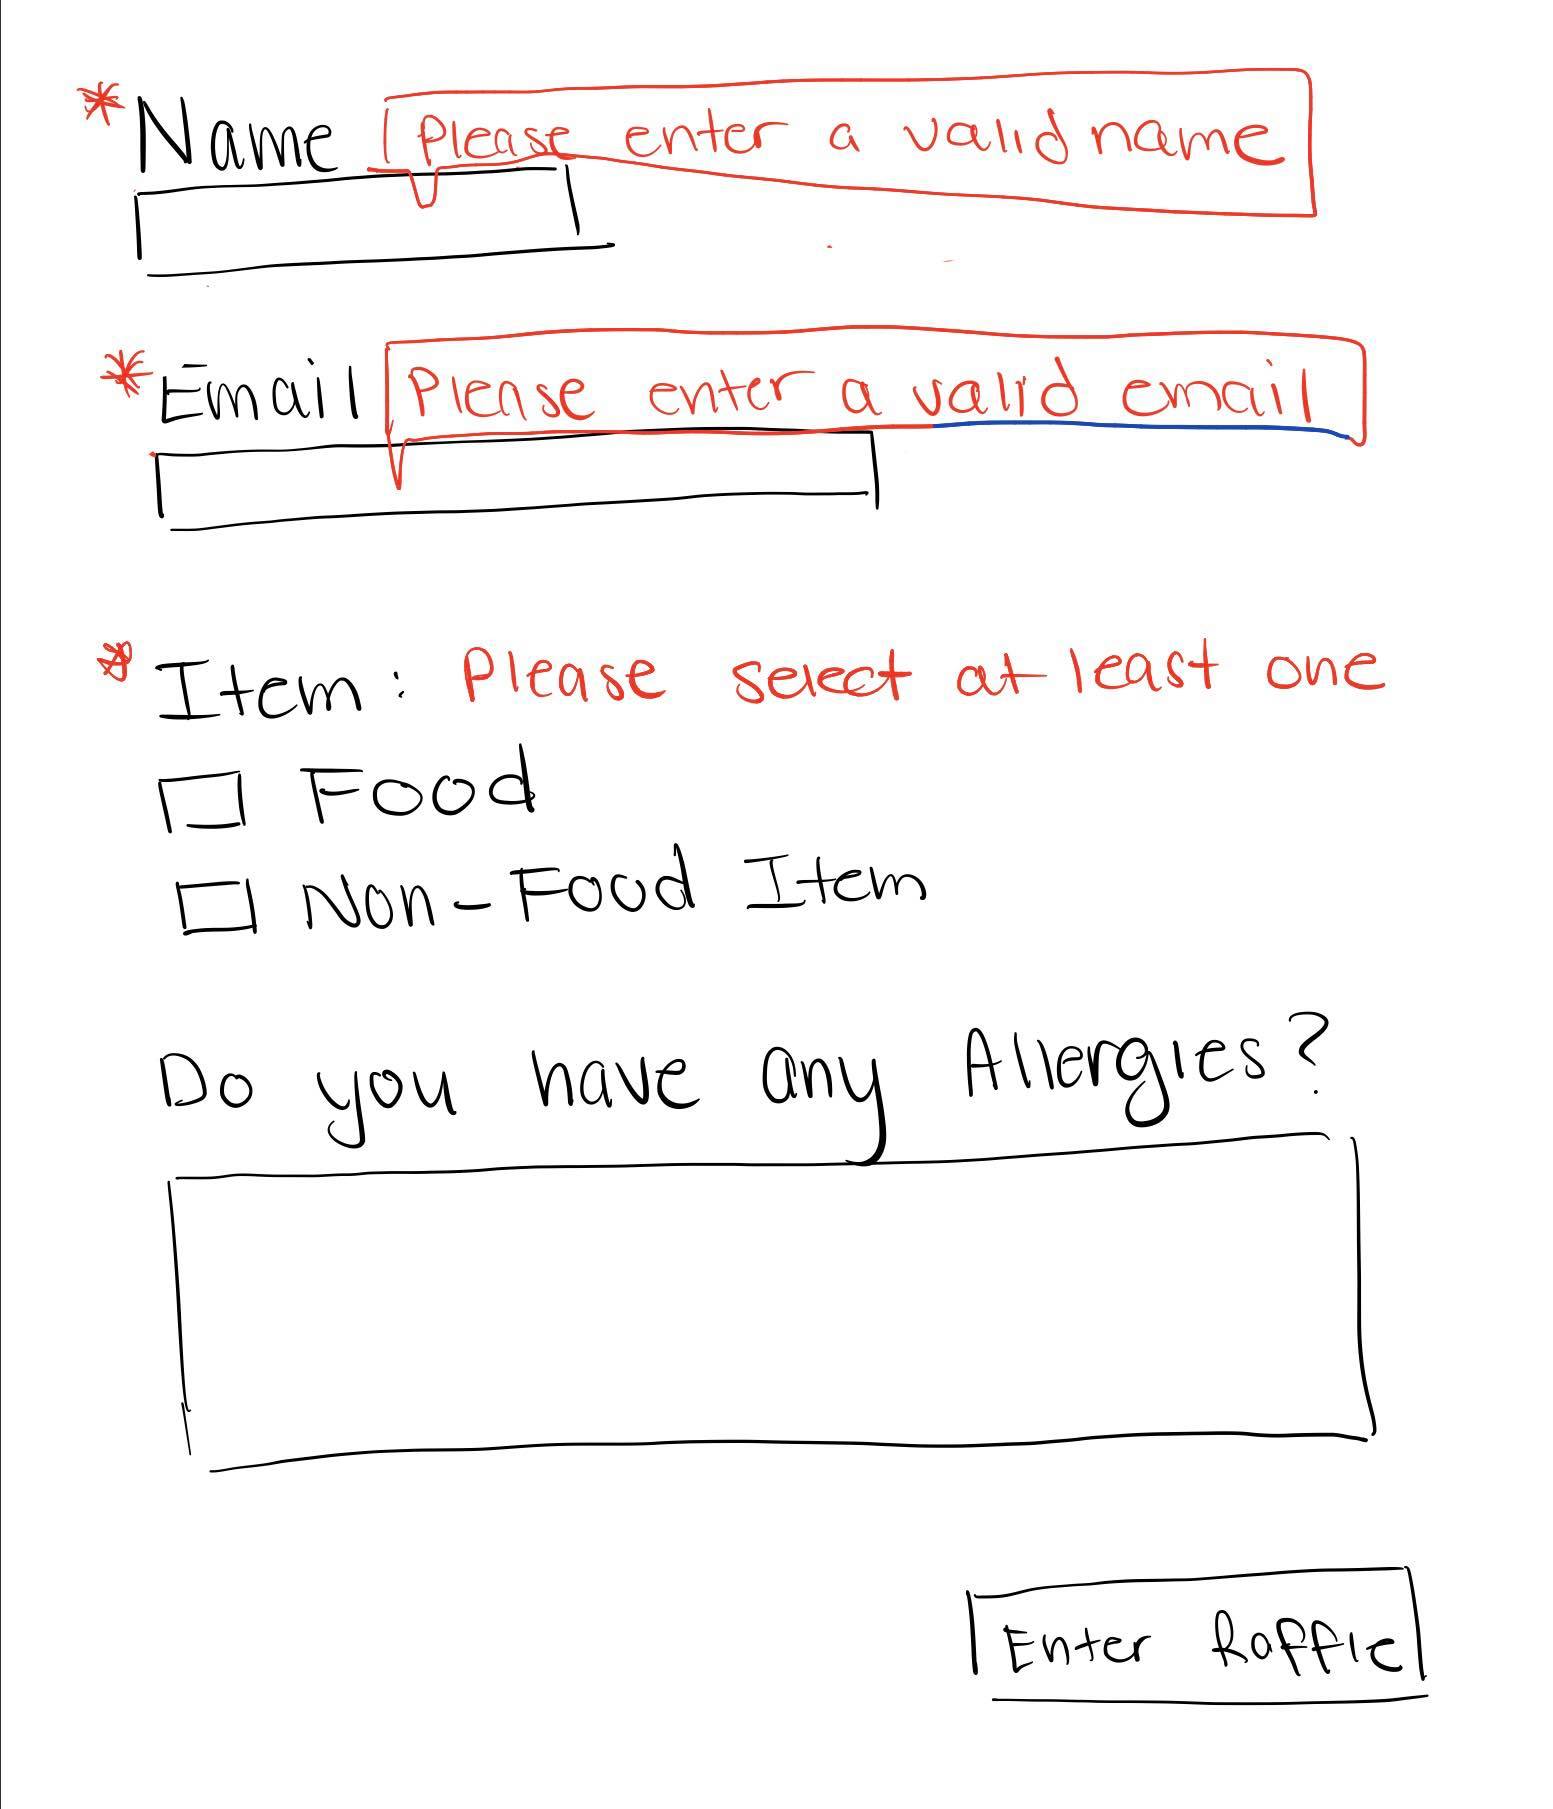 * Name Please enter a valid name
* Email Please enter a valid email
* Item: Please select at least one
Food
Non-Food Item
Do you have any Allergies?
Enter Raffle